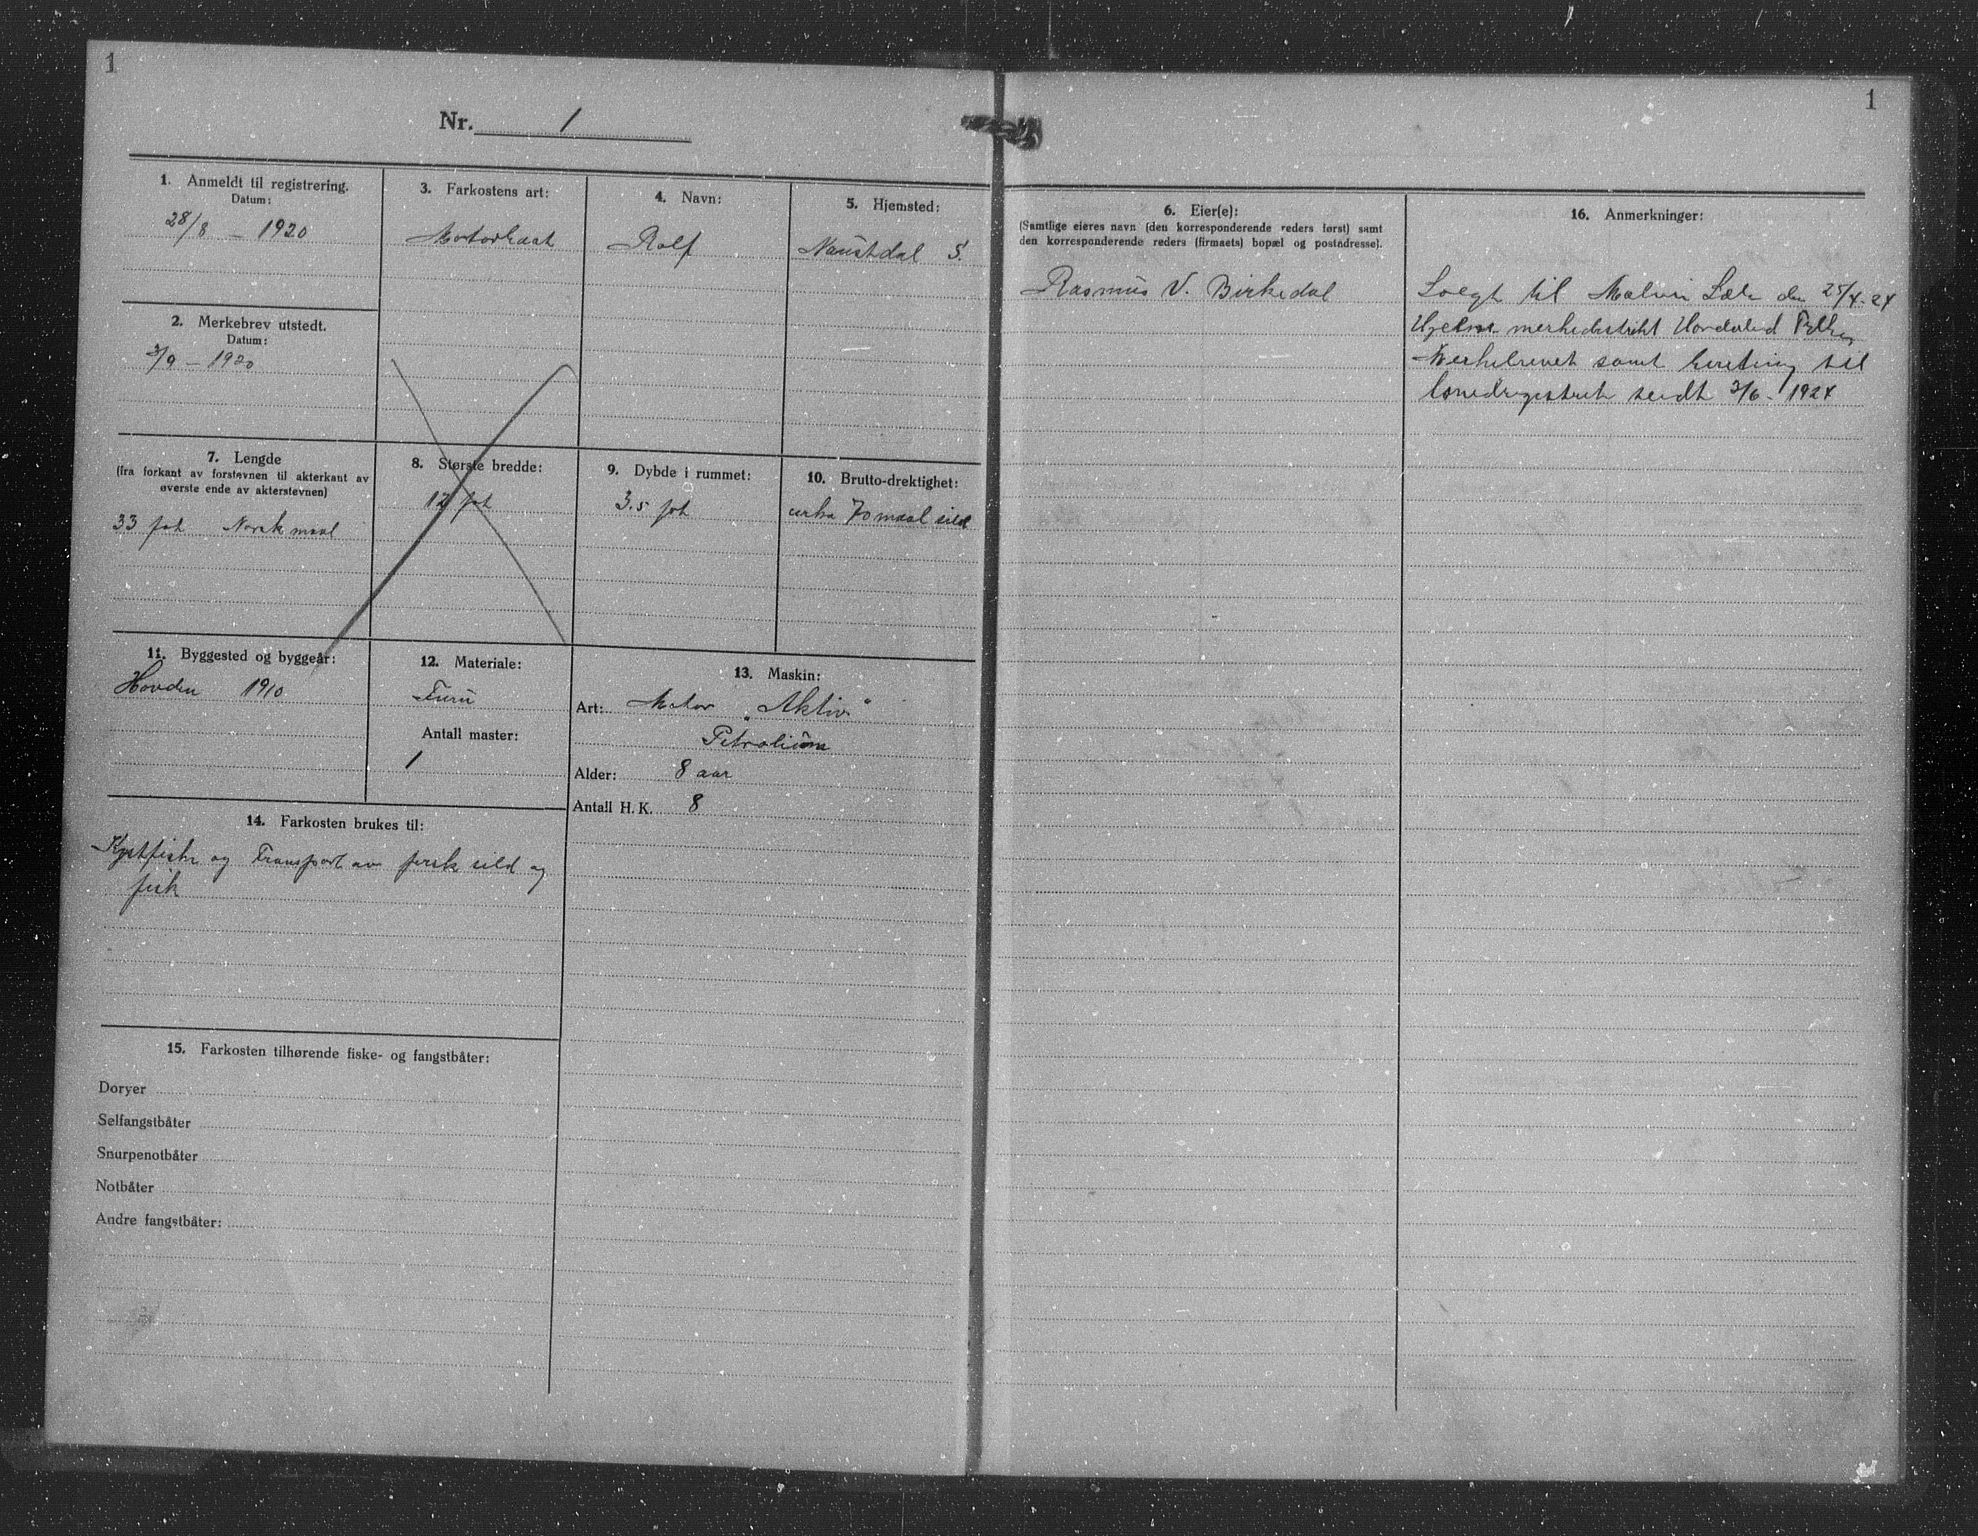 1
Nr. 1
1. Anmeldt til registrering.
Datum:
28/8 – 1920
2. Merkebrev utstedt.
Datum:
3/9 – 1920
3. Farkostens art:
Motorbaat
4. Navn:
Rolf
5. Hjemsted:
Naustdal S.
7. Lengde
(fra forkant av forstevnen til akterkant av
øverste ende av akterstevnen)
33 fot Norsk maal
8. Største bredde:
12 fot
9. Dybde i rummet:
3.5 fot
10. Brutto-drektighet:
cirka 70 maal sild
11. Byggested og byggeår:
Hovden 1910
12. Materiale:
Furu
Antall master:
1
13. Maskin:
Art: Motor "Aktiv"
Petroleum
Alder: 8 aar
Antall H. K. 8
14. Farkosten brukes til:
Kystfiske og Transport av fersk sild og
fisk
15. Farkosten tilhørende fiske- og fangstbåter:
Doryer
Selfangstbåter
Snurpenotbåter
Notbåter
Andre fangstbåter:
1
6. Eier(e):
(Samtlige eieres navn (den korresponderende reders først) samt
den korresponderende reders (firmaets) bopæl og postadresse).
Rasmus V. Birkedal
16. Anmerkninger:
Solgt til den 25/4-24
merkedistrikt Hordaland Fylke
Merkebrevet samt til
sendt 3/6 - 1924